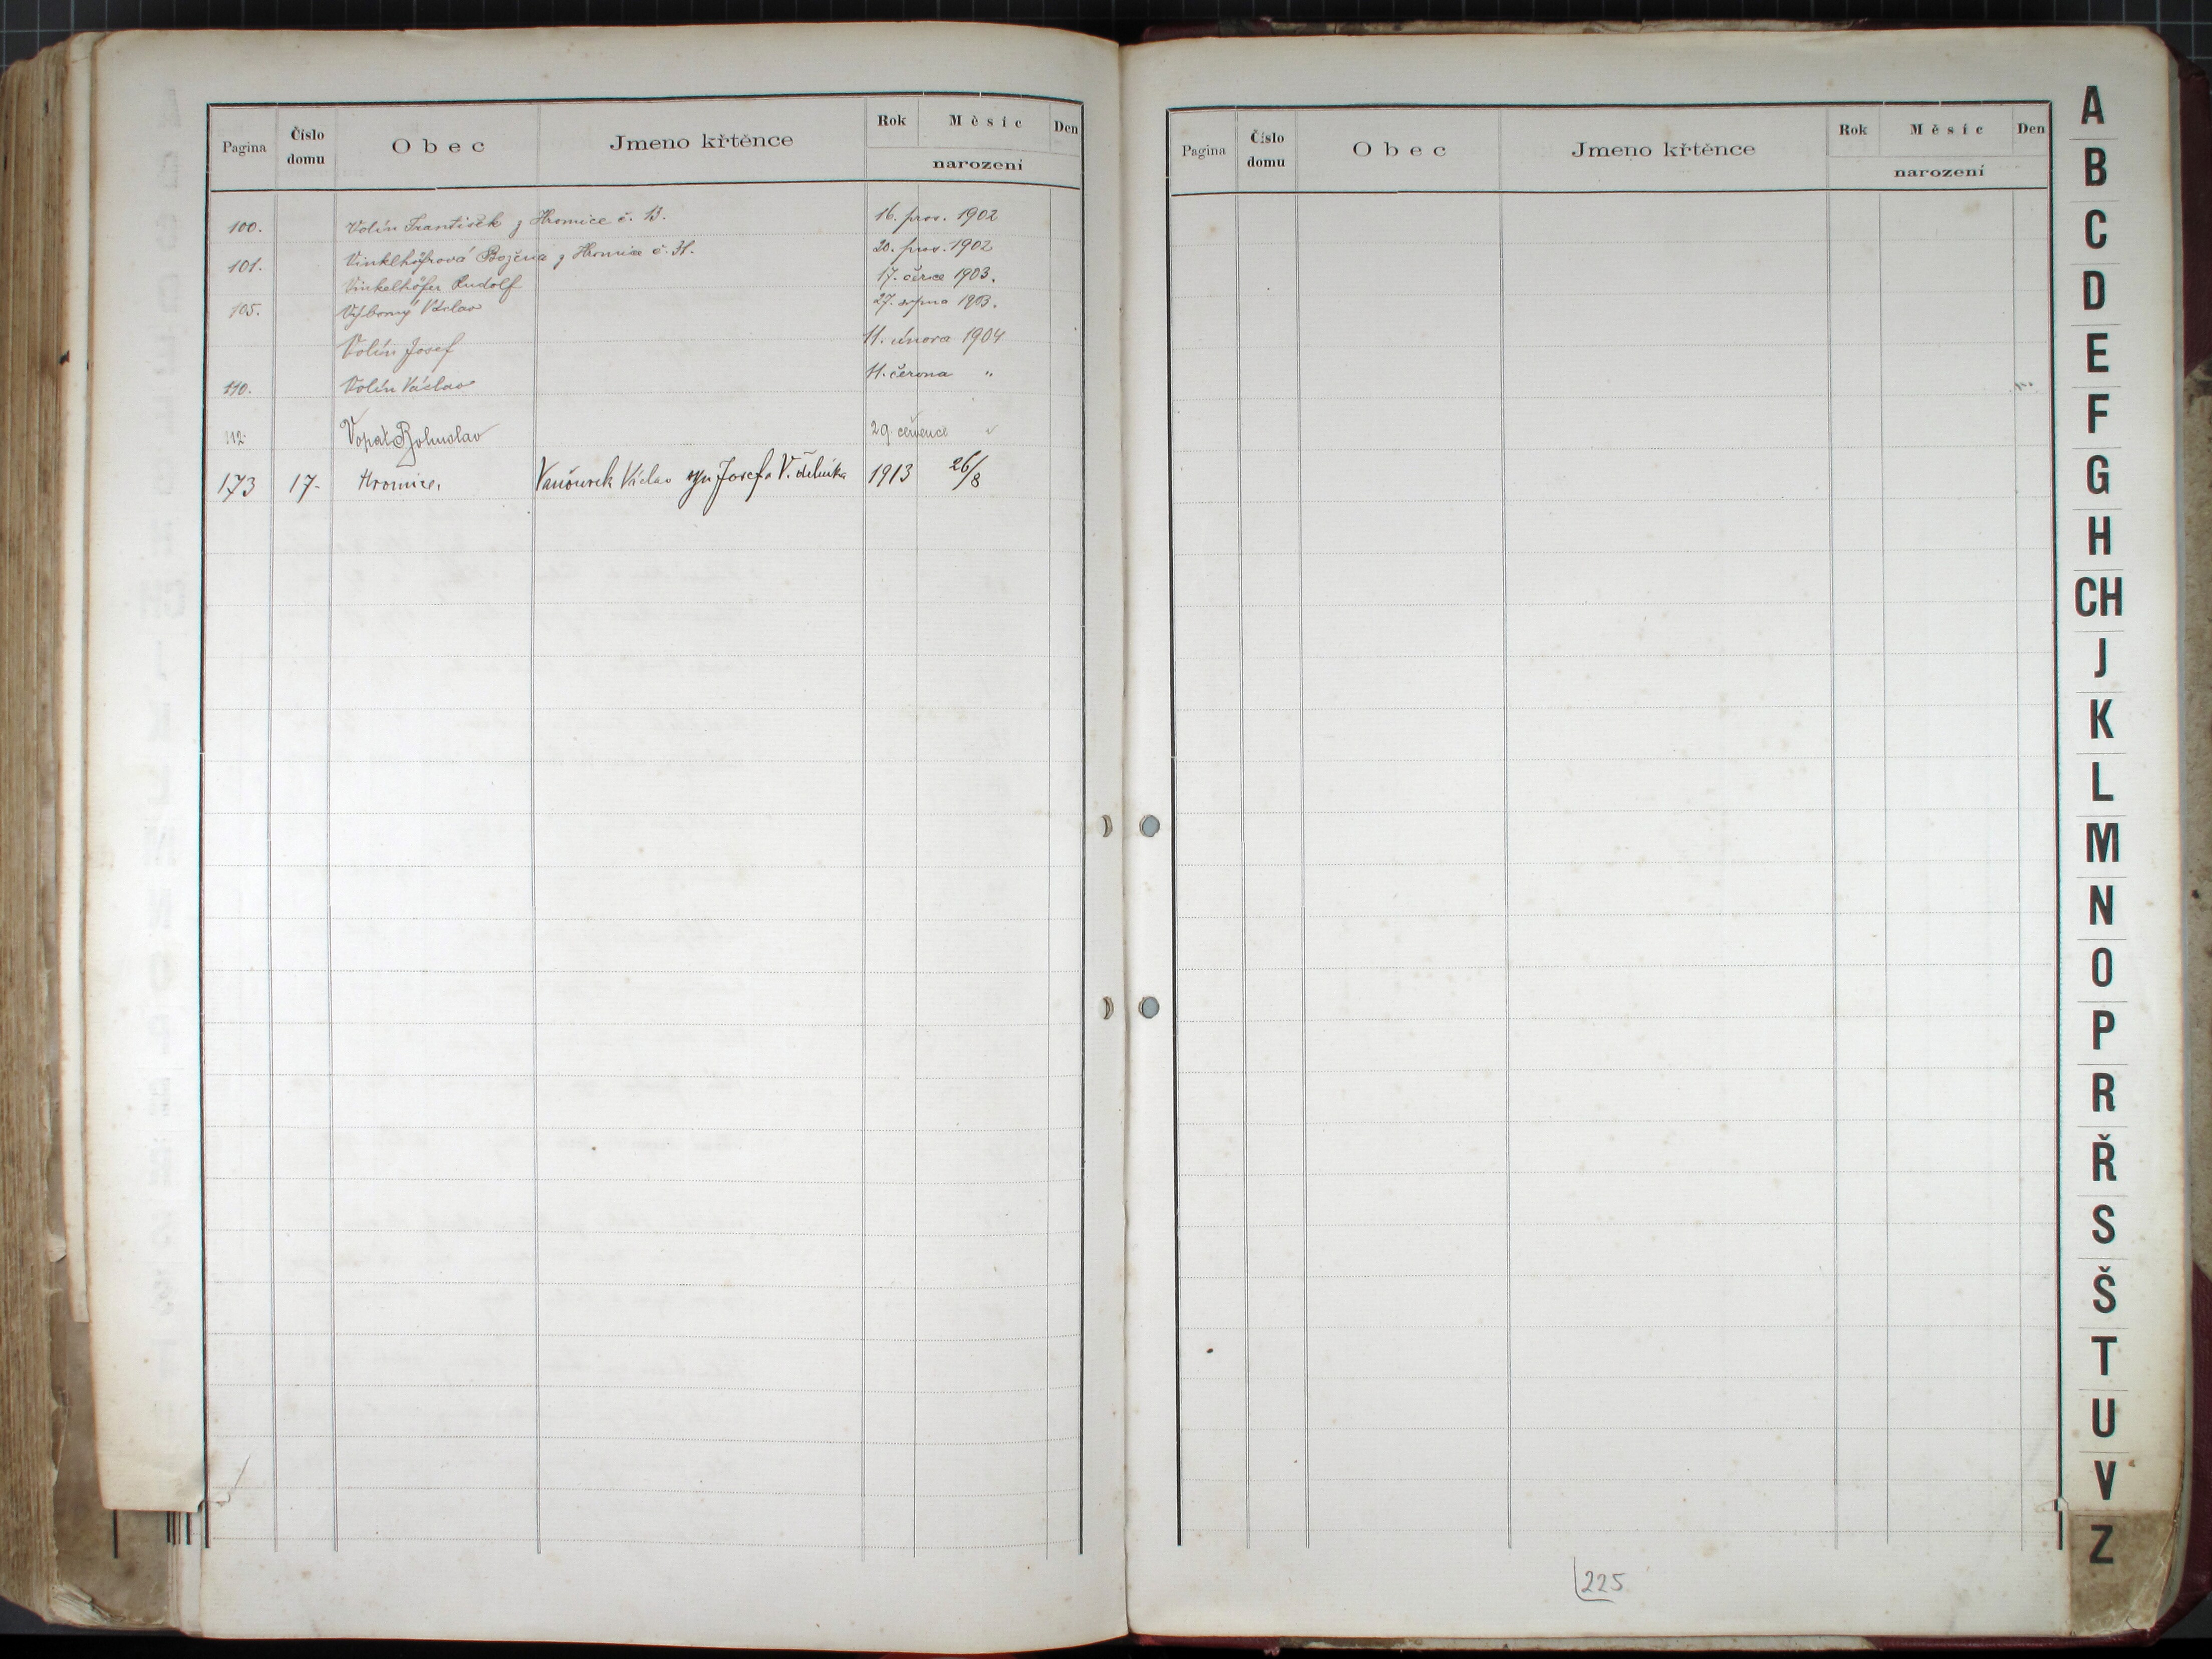 Pagina Číslo domu Obec Jmeno křtěnce Rok Měsíc Den
narození
100. Volín František z Hromice č. 13. 16. pros. 1902
101. Vinklhöfrová Božena z Hromice č. 31. 20. pros. 1902
Vinkelhöfer Rudolf 17. černce 1903.
105. Výborný Václav 27. srpna 1903.
Volín Josef 11. února 1904
110. Volín Václav 11. června "
112 Vopat Bohuslav 29. července "
173 17. Hromice. Vaňourek Václav syn Josefa V. dělníka 1913 26/8
Pagina Číslo domu Obec Jmeno křtěnce Rok Měsíc Den
narození
225
A
B
C
D
E
F
G
H
CH
J
K
L
M
N
O
P
R
Ř
S
Š
T
U
V
Z